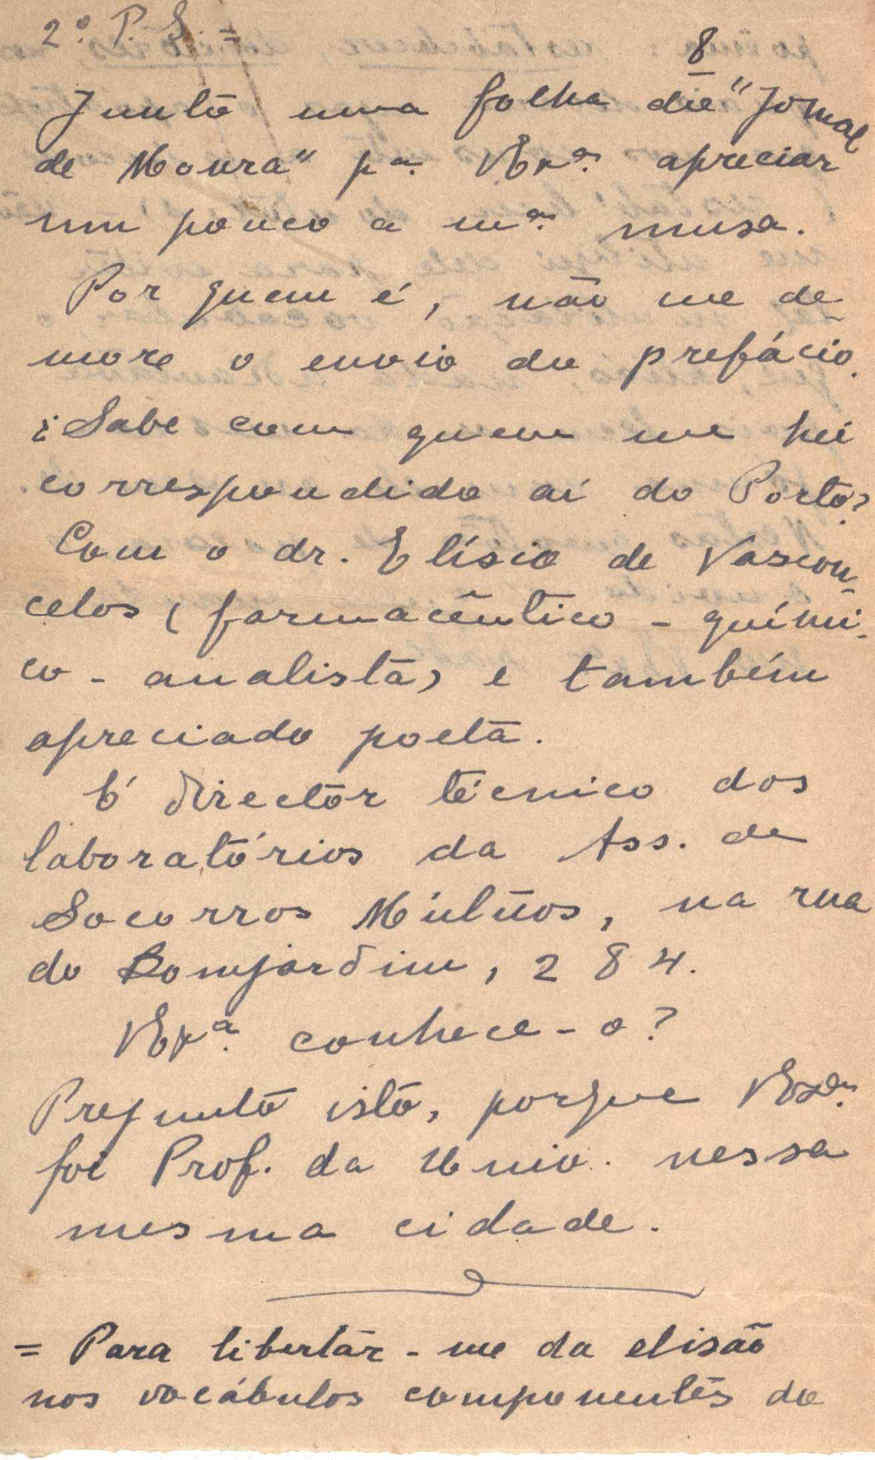 2º. P. S. =
8
Junto uma folha do "Jornal
de Moura" pª. V.Exª. apreciar
um pouco a mª. musa.
Por quem é, não me de
more o envio do prefácio.
¿Sabe com quem me hei
correspondido aí do Porto?
Com o dr. Elísio de Vascon-
celos (farmacêutico - quími-
co - analista) e também
apreciado poeta.
É director técnico dos
laboratórios da Ass. de
Socorros Mútuos, na rua
do Bomjardim, 284.
V.Exª. conhece-o?
Pregunto isto, porque V.Exª.
foi Prof. da Univ. nessa
mesma cidade.
= Para libertar-me da elisão
nos vocábulos componentes do